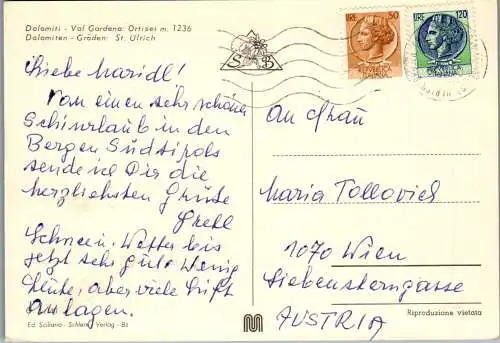 Dolomiti - Val Gardena: Ortisei m. 1236
Dolomiten - Gröden: St. Ulrich
S B
LIRE 50
LIRE 120
Liebe Maridl!
Von einen sehr schönen
Schiurlaub in den
Bergen Südtirols
sende ich Dir die
herzlichsten Grüße
Gretl
Schnee u. Wetter bis
jetzt sehr gut. Wenig
Leute, aber viele Lift
anlagen.
An Frau
Maria Tollovich
1070 Wien
Siebensterngasse
AUSTRIA
Riproduzione vietata
Ed. Sciliano - Schlern Verlag - Bz